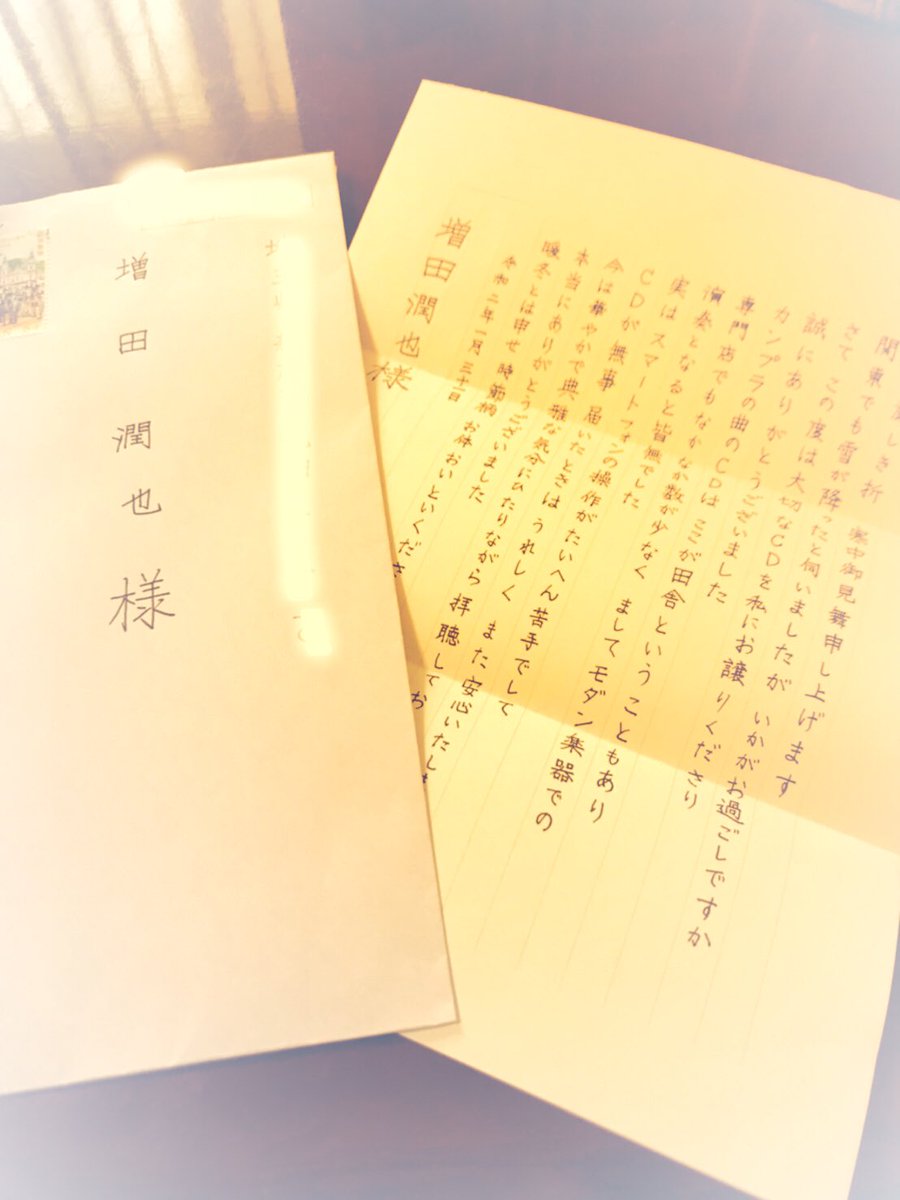 増田潤也様
しき折 寒中御見舞申し上げます
関東でも雪が降ったと伺いましたが いかがお過ごしですか
さて この度は大切なCDを私にお譲りくださり
誠にありがとうございました
カンプラの曲のCDは ここが田舎ということもあり
専門店でもなかなか数が少なく ましてモダン楽器での
演奏となると皆無でした
実はスマートフォンの操作がたいへん苦手でして
CDが無事 届いたときは うれしく また安心いたしま
今は華やかで典雅な気分にひたりながら 拝聴してお
本当にありがとうございました
暖冬とは申せ 時節柄 お体おいといくださ
令和二年一月三十一日
増田潤也様